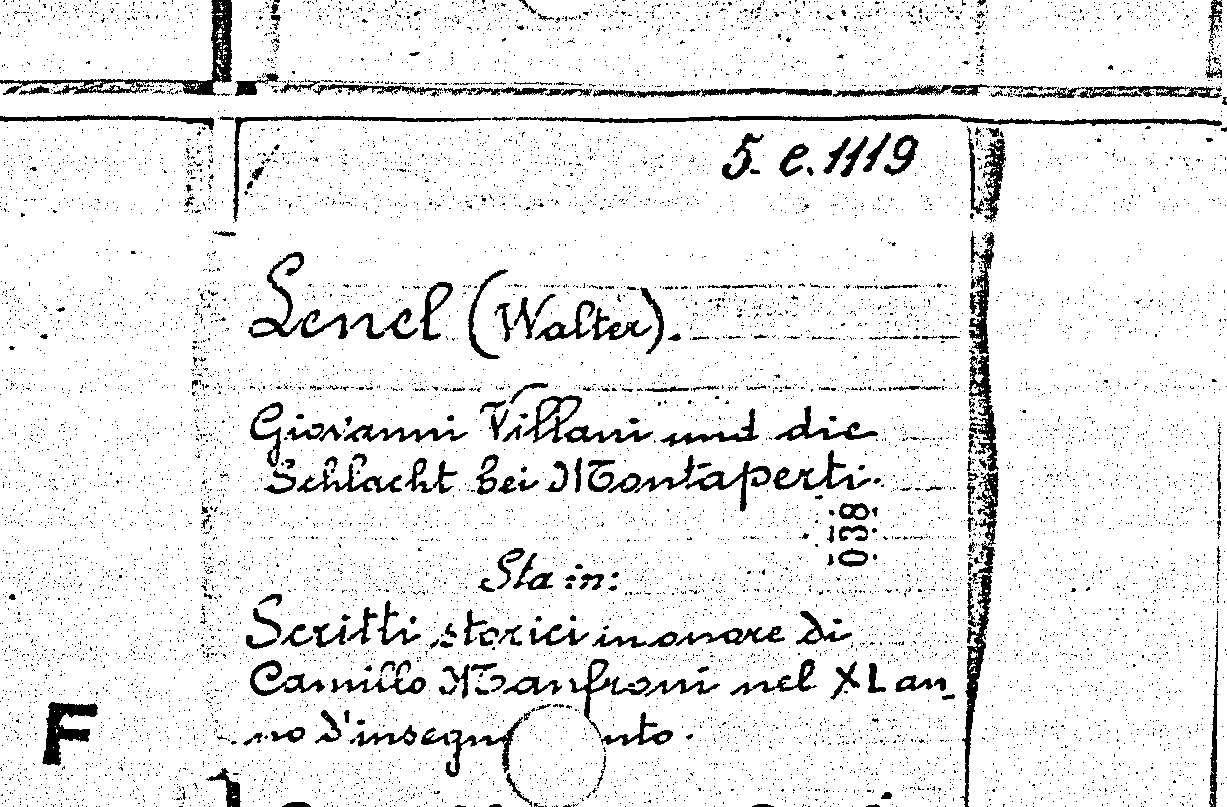 5. e. 1119
Lenel (Walter).
Giovanni Villani und die
Schlacht bei Montaperti.
038
Sta in:
Scritti storici in onore di
Camillo Manfroni nel XL an_
no d'insegn nto.
F